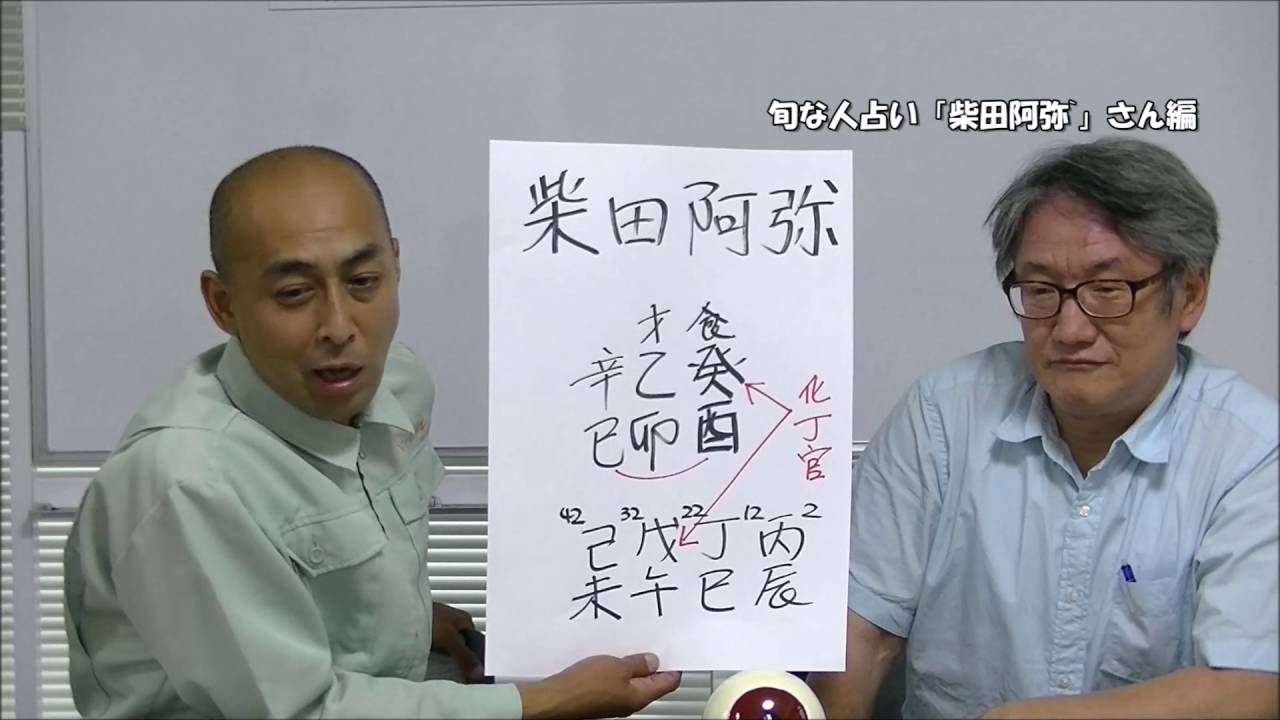 旬な人占い『柴田阿弥』さん編
柴田阿弥
才 食
辛乙癸
巳卯酉
化丁官
42 32 22 12 2
己戊丁丙
未午巳辰